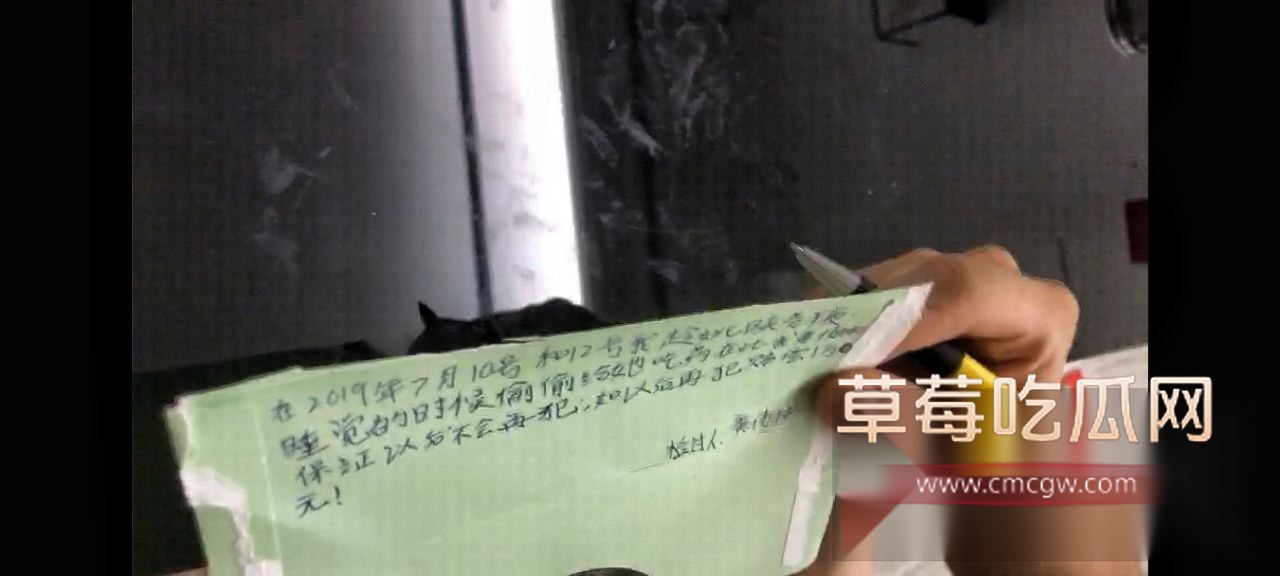 在2019年7月10号和12号我趁
睡觉的时候偷偷给奶吃药在此
保证以后不会再犯,如以后再犯赔偿100
元!
检讨人
草莓吃瓜网
www.cmcgw.com